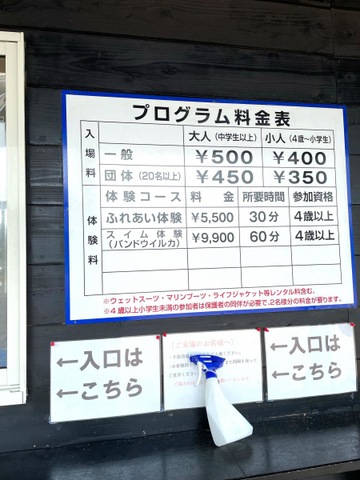 プログラム料金表
入場料
大人（中学生以上） 小人（4歳～小学生）
一般 ￥500 ￥400
団体（20名以上） ￥450 ￥350
体験料
体験コース 料金 所要時間 参加資格
ふれあい体験 ￥5,500 30分 4歳以上
スイム体験（バンドウイルカ） ￥9,900 60分 4歳以上
※ウェットスーツ・マリンブーツ・ライフジャケット等レンタル料含む。
※4歳以上小学生未満の参加者は保護者の同伴が必要で、2名様分の料金が要ります。
←入口は
←こちら
ご来場のお客様へ
←入口は
←こちら